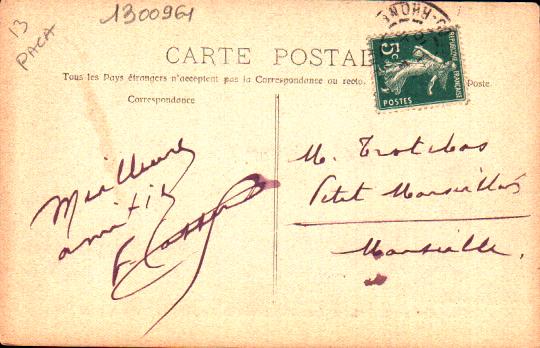 13
PACA
1300961
CARTE POSTAL
Tous les Pays étrangers n'acceptent pas la Correspondance au recto.
Poste.
Correspondance
5c
REPUBLIQUE FRANÇAISE
POSTES
Meilleure
amitié
M. Trotobas
Petit Marseillais
Marseille.